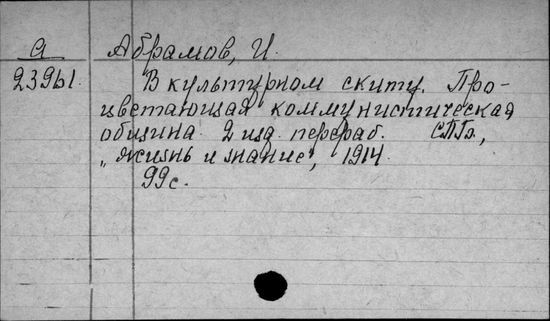 а
23961.
Абрамов, И.
В культурном скиту. Про-
цветающая коммунистическая
община. 2 изд. перераб. СПб.,
„Жизнь и знание“, 1914.
99 с.